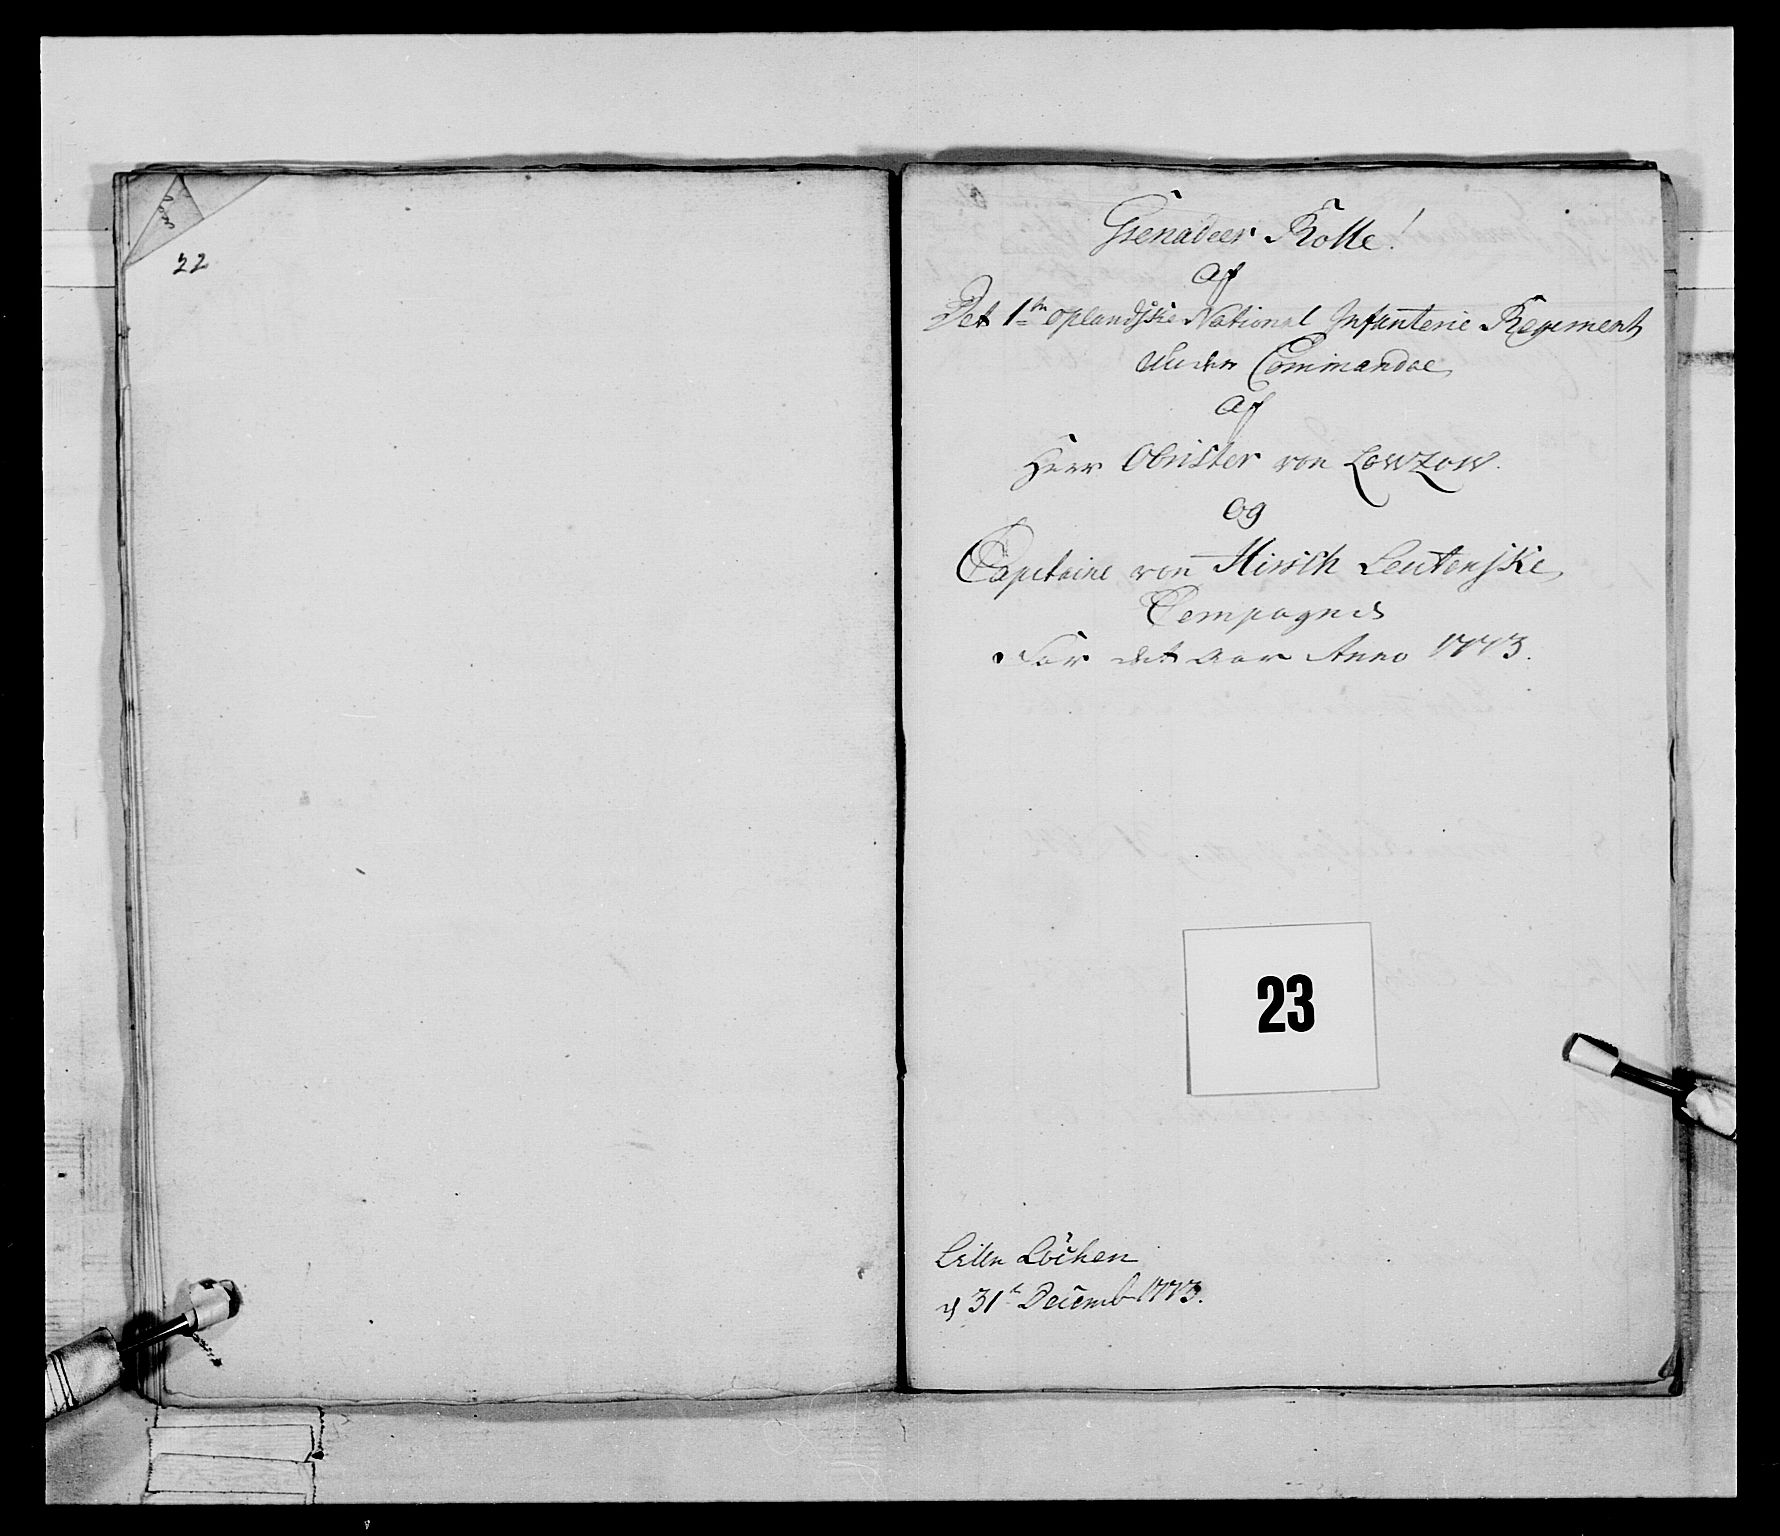 22
Grenadeer Rolle!
Af
Det 1te Oplandske National Infanterie Regiment
Under Commandoe
Af
Herr Obrister von Lowzow.
Og
Capitaine von Hirsch Leutenske
Compagnie
For det Aar Anno 1773.
23
Løchen
d 31te Decemb 1773.